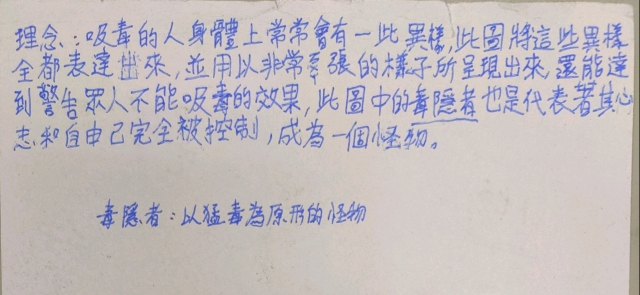 理念：吸毒的人身體上常常會有一些異樣，此圖將這些異樣
全都表達出來，並用以非常夸張的樣子所呈現出來，還能達
到警告眾人不能吸毒的效果，此圖中的毒隱者也是代表著其心
志和自由已完全被控制，成為一個怪物。
毒隱者：以猛毒為原形的怪物